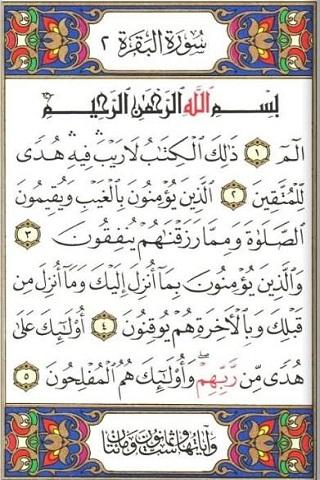 سُورَةُ الْبَقَرَةِ ٢
بِسْمِ اللَّهِ الرَّحْمَٰنِ الرَّحِيمِ
الٓمٓ ١ ذَٰلِكَ ٱلْكِتَٰبُ لَا رَيْبَ ۛ فِيهِ ۛ هُدًى
لِّلْمُتَّقِينَ ٢ ٱلَّذِينَ يُؤْمِنُونَ بِٱلْغَيْبِ وَيُقِيمُونَ
ٱلصَّلَوٰةَ وَمِمَّا رَزَقْنَٰهُمْ يُنفِقُونَ ٣
وَٱلَّذِينَ يُؤْمِنُونَ بِمَآ أُنزِلَ إِلَيْكَ وَمَآ أُنزِلَ مِن
قَبْلِكَ وَبِٱلْءَاخِرَةِ هُمْ يُوقِنُونَ ٤ أُو۟لَٰٓئِكَ عَلَىٰ
هُدًى مِّن رَّبِّهِمْ ۖ وَأُو۟لَٰٓئِكَ هُمُ ٱلْمُفْلِحُونَ ٥
وَآيَاتُهَا سِتٌّ وَثَمَانُونَ وَمِائَتَانِ